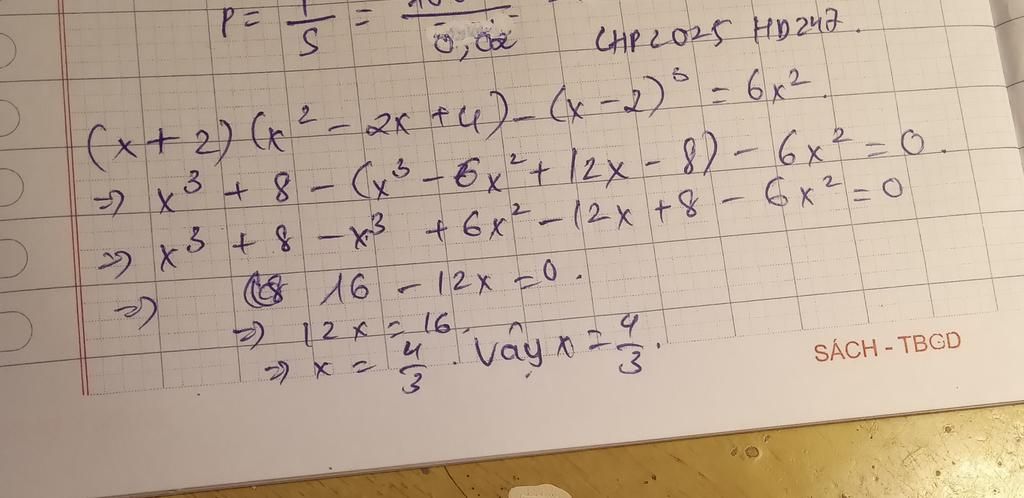 P = 1/S = 0,02 CHP2025 HD247.
(x + 2) (x² - 2x + 4) - (x - 2)³ = 6x².
=> x³ + 8 - (x³ - 6x² + 12x - 8) - 6x² = 0.
=> x³ + 8 - x³ + 6x² - 12x + 8 - 6x² = 0
=> 16 - 12x = 0.
=> 12x = 16.
=> x = 4/3. Vậy x = 4/3.
SÁCH - TBGD